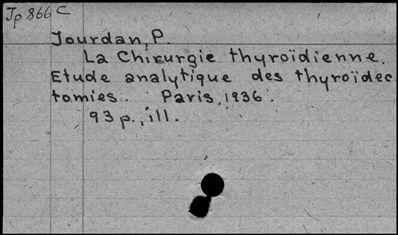 Jp 866 C
Jourdan, P.
La Chirurgie thyroïdienne.
Etude analytique des thyroïdec
tomies. Paris, 1936.
93 p., ill.